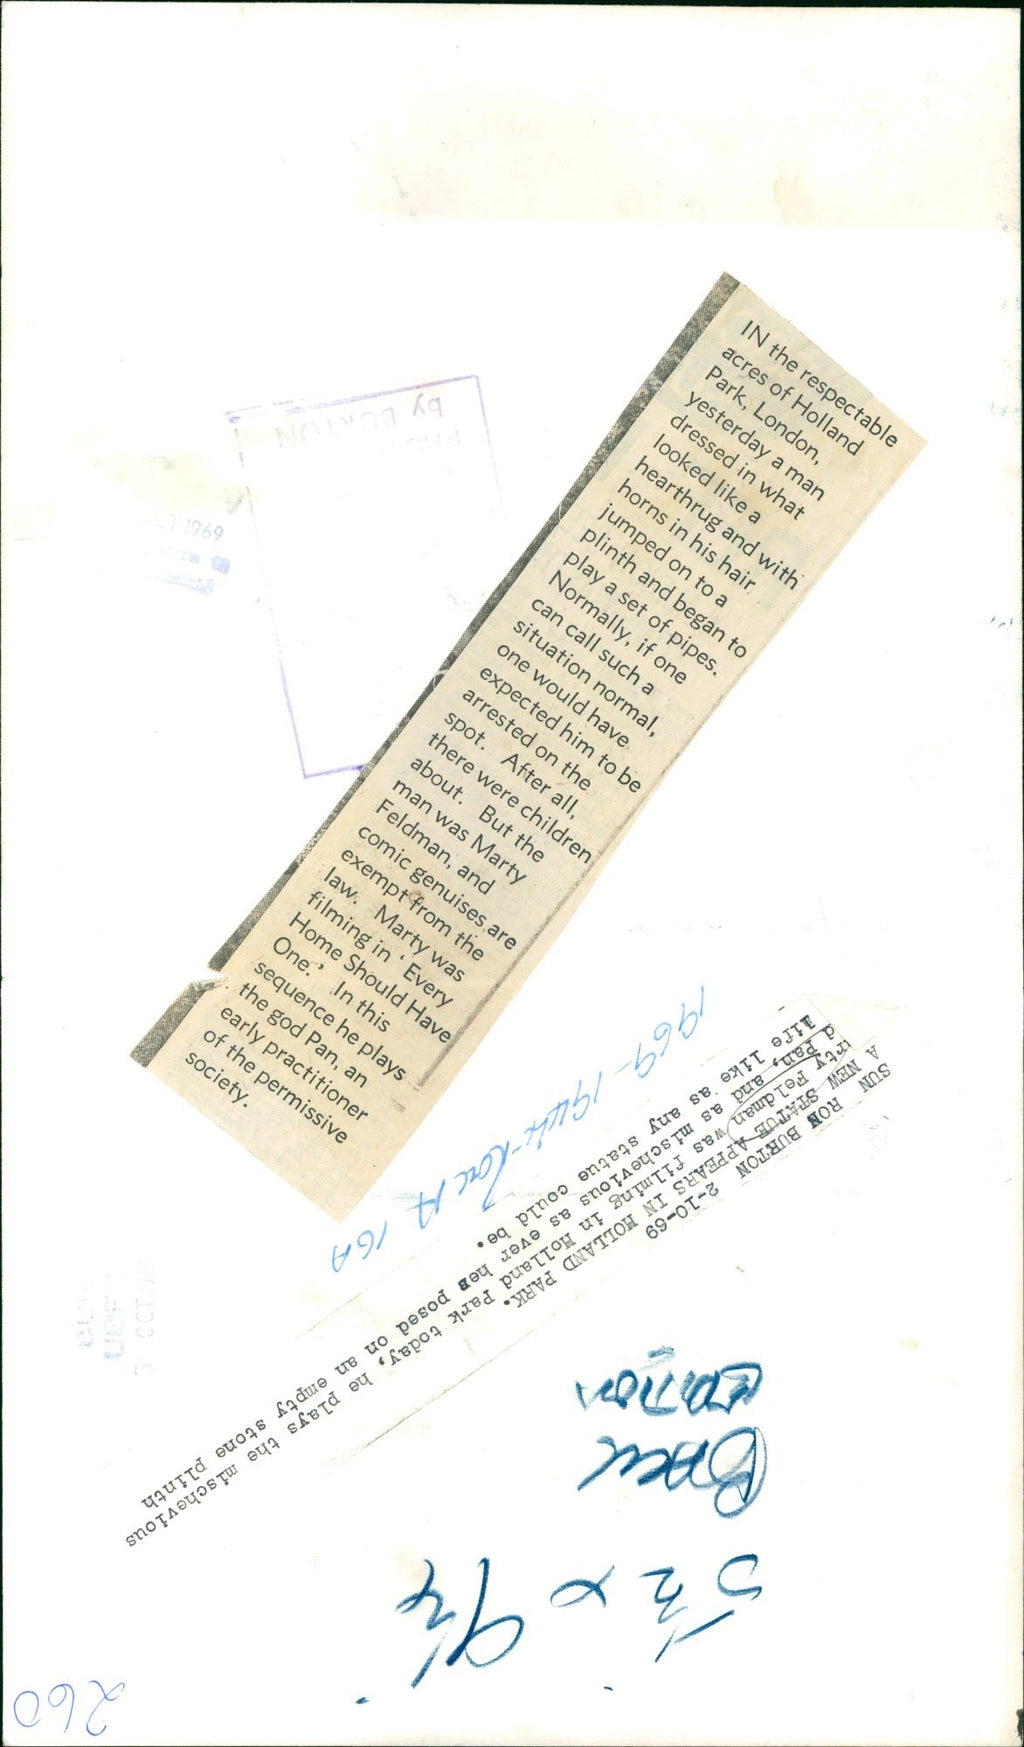 IN the respectable
acres of Holland
Park, London,
yesterday a man
dressed in what
looked like a
hearthrug and with
horns in his hair
jumped on to a
plinth and began to
play a set of pipes.
Normally, if one
can call such a
situation normal,
one would have
expected him to be
arrested on the
spot. After all,
there were children
about. But the
man was Marty
Feldman, and
comic genuises are
exempt from the
law. Marty was
filming in ‘Every
Home Should Have
One.’ In this
sequence he plays
the god Pan, an
early practitioner
of the permissive
society.
by BURTON
1969
SUN RON BURTON 2-10-69
A NEW STATUE APPEARS IN HOLLAND PARK.
rty Feldman was filming in Holland Park today, he plays the mischevious
d Pan, and as mischevious as ever hes posed on an empty stone plinth
life like as any statue could be.
16A
OCT
BACK
EDITION
5½ x 9¼
260